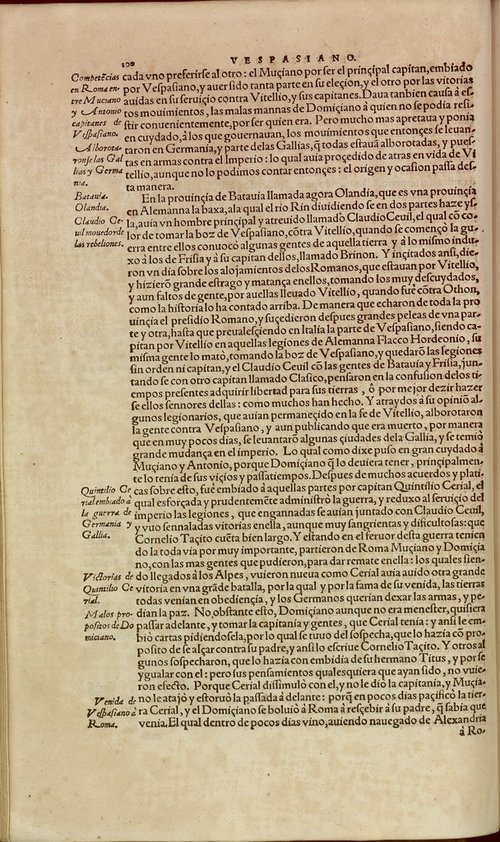 100
VESPASIANO.
Compet̃ecias
en Roma en-
tre Muciano
y Antonio
capitanes de
Vespasiano.
cada vno preferirse al otro: el Muçiano por ser el prinçipal capitan, embiado
por Vespasiano, y auer sido tanta parte en su eleçion, y el otro por las vitorias
auidas en su seruiçio contra Vitellio, y sus capitanes. Daua tanbien causa à es-
tos mouimientos, las malas mannas de Domiçiano à quien no se podia resi-
stir conuenientemente, por ser quien era. Pero mucho mas apretaua y ponia
en cuydado, à los que gouernauan, los mouimientos que entonçes se leuan-
Alborota-
ronse las Gal
lias y Germa
nia.
taron en Germania, y parte delas Gallias, q̃ todas estauã alborotadas, y pues-
tas en armas contra el Imperio: lo qual auia proçedido de atras en vida de Vi
tellio, aunque no lo podimos contar entonçes: el origen y ocasion passa des-
ta manera.
Batauia.
Olandia.
Claudio Ce-
uil mouedor de
las rebeliones.
En la prouinçia de Batauia llamada agora Olandia, que es vna prouinçia
en Alemanna la baxa, ala qual el rio Rin diuidiendo se en dos partes haze ys-
la, auia vn hombre prinçipal y atreuido llamado Claudio Ceuil, el qual cõ co-
lor de tomar la boz de Vespasiano, cõtra Vitellio, quando se començo la gu-
erra entre ellos conuocò algunas gentes de aquella tierra y à lo mismo indu-
xo à los de Frisia y à su capitan dellos, llamado Brinon. Y inçitados ansi, die-
ron vn dia sobre los alojamientos delos Romanos, que estauan por Vitellio,
y hizierõ grande estrago y matança en ellos, tomando los muy descuydados,
y aun faltos de gente, por auellas lleuado Vitellio, quando fue cõtra Othon,
como la historia lo ha contado arriba. De manera que echaron de toda la pro
uinçia el presidio Romano, y suçedieron despues grandes peleas de vna par-
te y otra, hasta que preualesçiendo en Italia la parte de Vespasiano, siendo ca-
pitan por Vitellio en aquellas legiones de Alemanna Flacco Hordeonio, su
misma gente lo matò, tomando la boz de Vespasiano, y quedarõ las legiones
sin orden ni capitan, y el Claudio Ceuil cõ las gentes de Batauia y Frisia, jun-
tando se con otro capitan llamado Clasico, pensaron en la confusion delos ti-
empos presentes adquirir libertad para sus tierras, ò por mejor dezir hazer
se ellos sennores dellas: como muchos han hecho. Y atraydos à su opiniõ al-
gunos legionarios, que auian permaneçido en la fe de Vitellio, alborotaron
la gente contra Vespasiano, y aun publicando que era muerto, por manera
que en muy pocos dias, se leuantarõ algunas çiudades dela Gallia, y se temiò
grande mudança en el imperio. Lo qual como dixe puso en gran cuydado à
Muçiano y Antonio, porque Domiçiano q̃ lo deuiera tener, principalmen-
te lo tenia de sus viçios y passatiempos. Despues de muchos acuerdos y plati-
Quintilio Ce
rial embiado à
la guerra de
Germania y
Gallia.
cas sobre esto, fuè embiado à aquellas partes por capitan Quintilio Cerial, el
qual esforçada y prudentemẽte administrò la guerra, y reduxo al seruiçio del
imperio las legiones, que engannadas se auian juntado con Claudio Ceuil,
y vuo sennaladas vitorias enella, aunque muy sangrientas y dificultosas: que
Cornelio Taçito cuẽta bien largo. Y estando en el feruor desta guerra tenien
do la toda via por muy importante, partieron de Roma Muçiano y Domiçia
no, con las mas gentes que pudieron, para dar remate enella: los quales sien-
Victorias de
Quintilio Ce
rial.
do llegados à los Alpes, vuieron nueua como Cerial auia auido otra grande
vitoria en vna grãde batalla, por la qual y por la fama de su venida, las tierras
todas venian en obediençia, y los Germanos querian dexar las armas, y pe-
Malos pro-
positos de Do
miciano.
dian la paz. No, obstãte esto, Domiçiano aunque no era menester, quisiera
passar adelante, y tomar la capitania y gentes, que Cerial tenia: y ansi le em-
biò cartas pidiendosela, por lo qual se tuuo del sospecha, que lo hazia cõ pro-
posito de se alçar contra su padre, y ansi lo escriue Cornelio Taçito. Y otros al
gunos sospecharon, que lo hazia con embidia de su hermano Titus, y por se
ygualar con el: pero sus pensamientos qualesquiera que ayan sido, no vuie-
ron efecto. Porque Cerial dissimulò con el, y no le diò la capitania, y Muçia-
Venida de
Vespasiano à
Roma.
no le atajò y estoruò la passada à delante: porq̃ en pocos dias paçificò la tier-
ra Cerial, y el Domiçiano se boluiò à Roma à resçebir à su padre, q̃ sabia que
venia. El qual dentro de pocos dias vino, auiendo nauegado de Alexandria
à Ro-